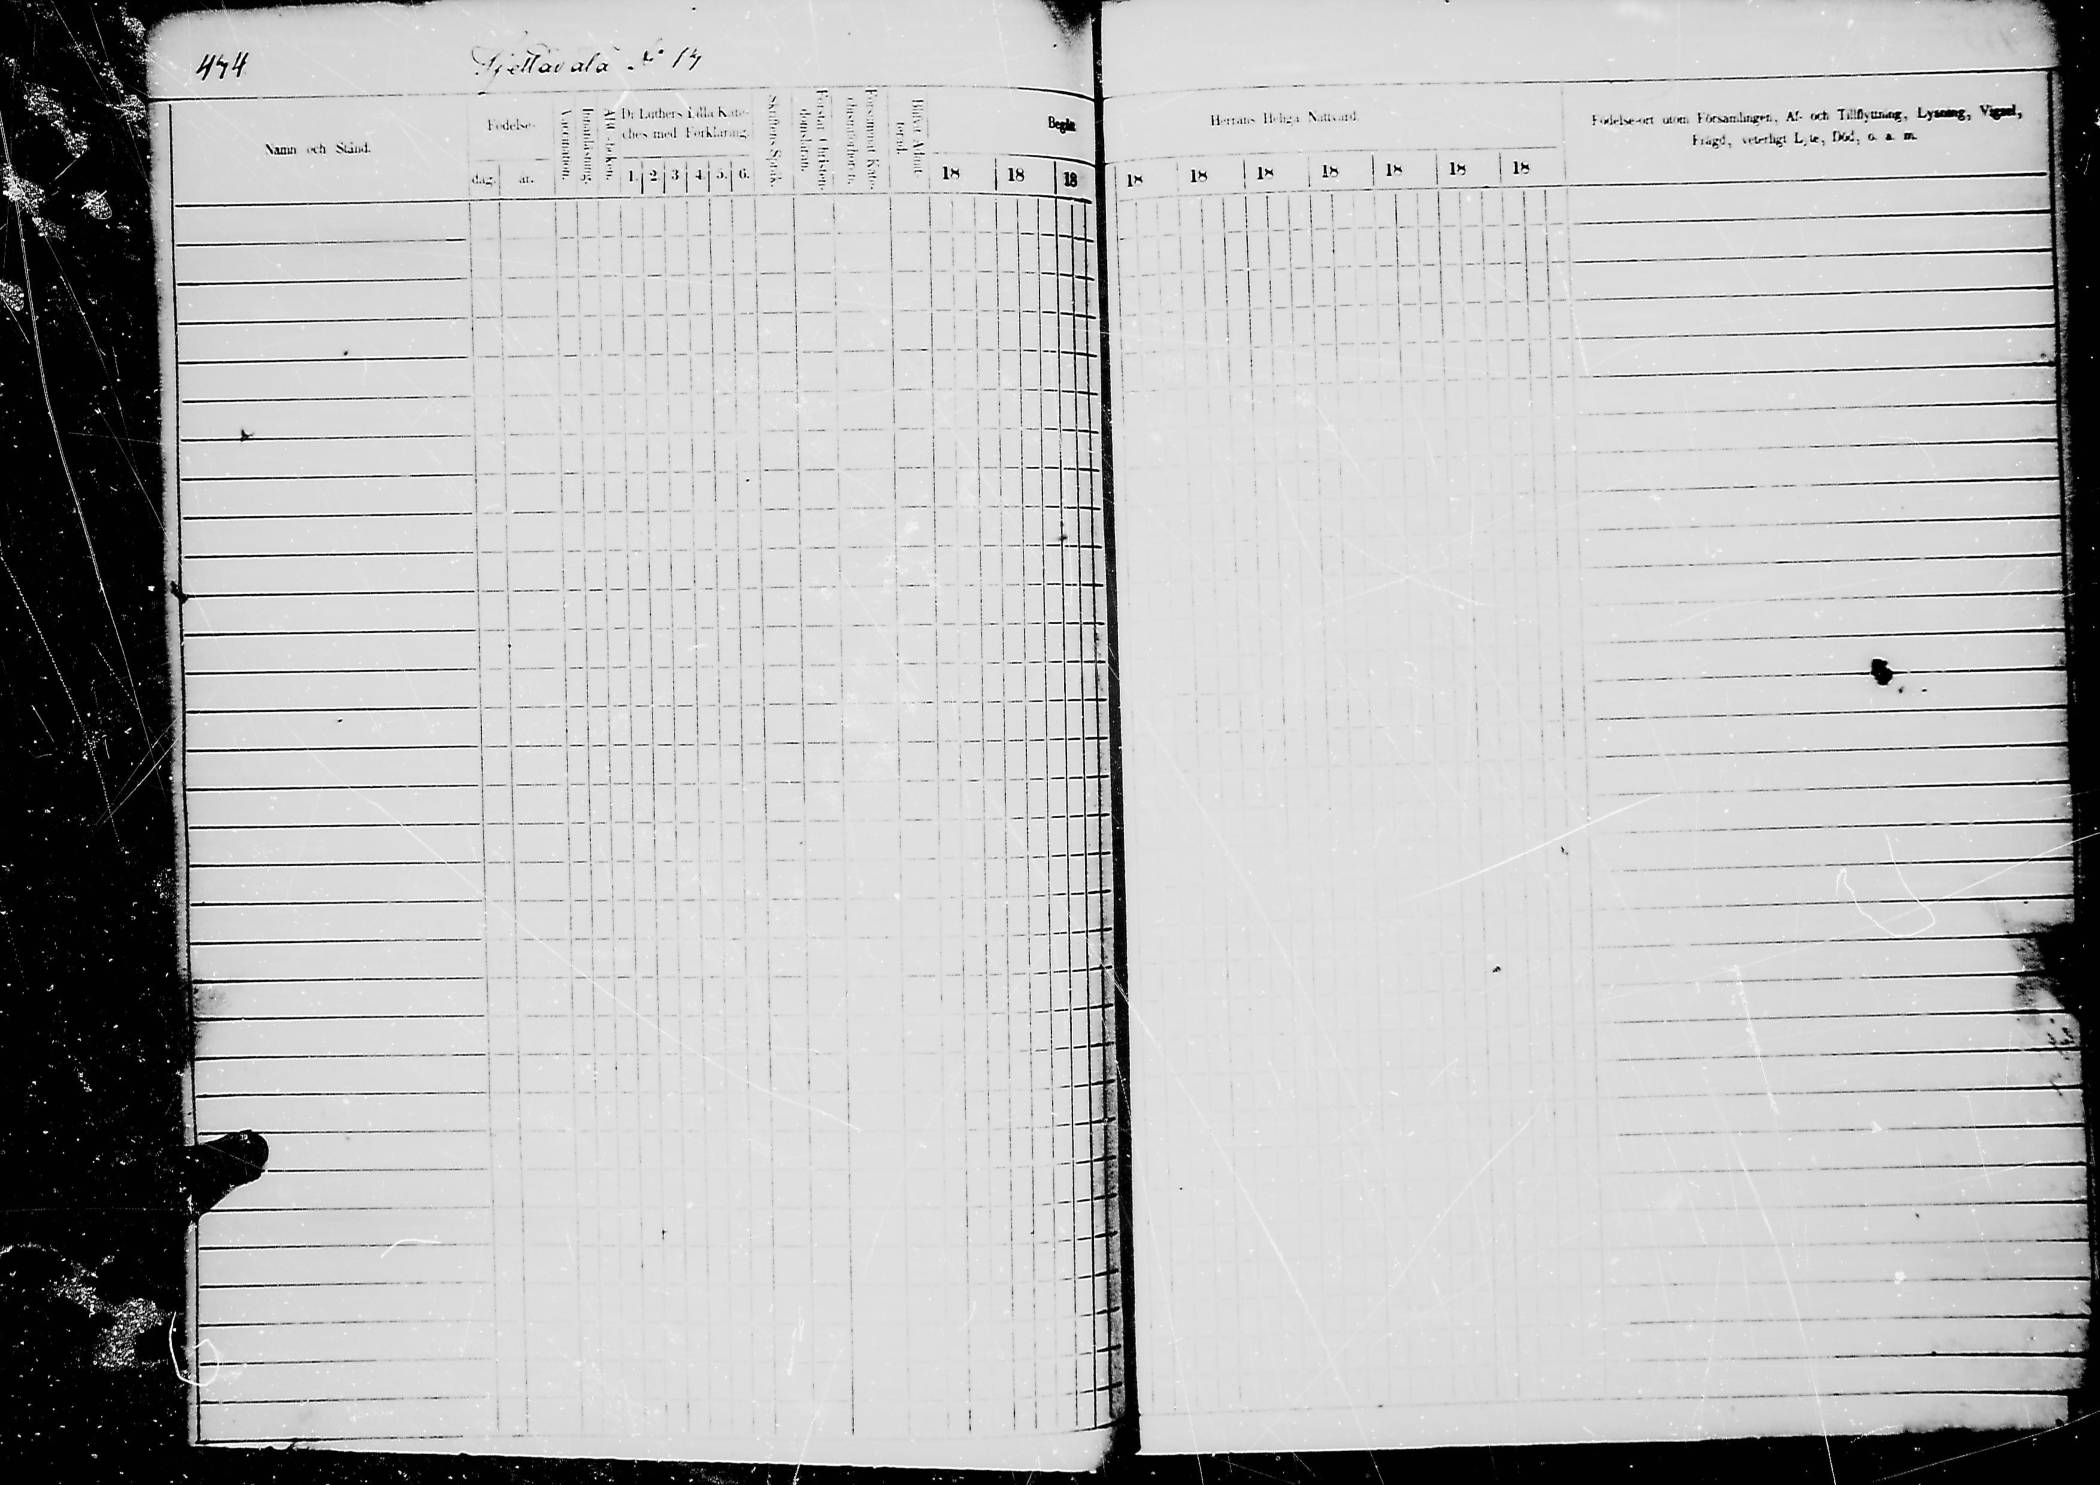 474
Nº 17
Namn och Stånd.
Födelse-
dag.
år.
Vaccination.
Innanläsning.
ABC-boken.
Dr Luthers Lilla Kate-
ches med Förklaring.
1. 2. 3. 4. 5. 6.
Skriftens Språk.
Förstår Christen-
domsläran.
Försummat Kate-
chismiförhören.
Blifvit Admit-
terad.
Begått
18 18 18
Herrans Heliga Nattvard.
18 18 18 18 18 18 18
Födelse-ort utom Församlingen, Af- och Tillflyttning, Lysning, Vigsel,
Frägd, veterligt Lyte, Död, o. a. m.